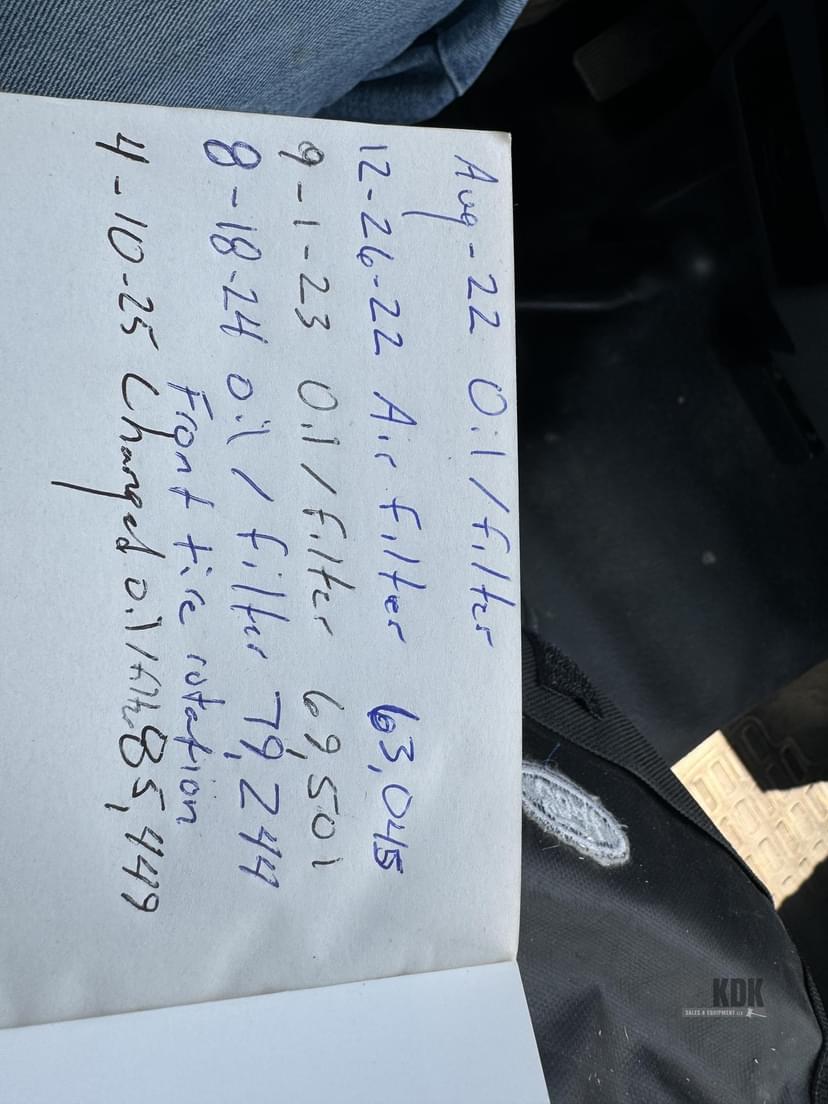 Aug-22 Oil/filter
12-26-22 Air filter 63,045
9-1-23 Oil/filter 69,501
8-18-24 oil/filter 79,244
Front tire rotation
4-10-25 Changed oil/filter 85,449
KDK
SALES & EQUIPMENT LLC